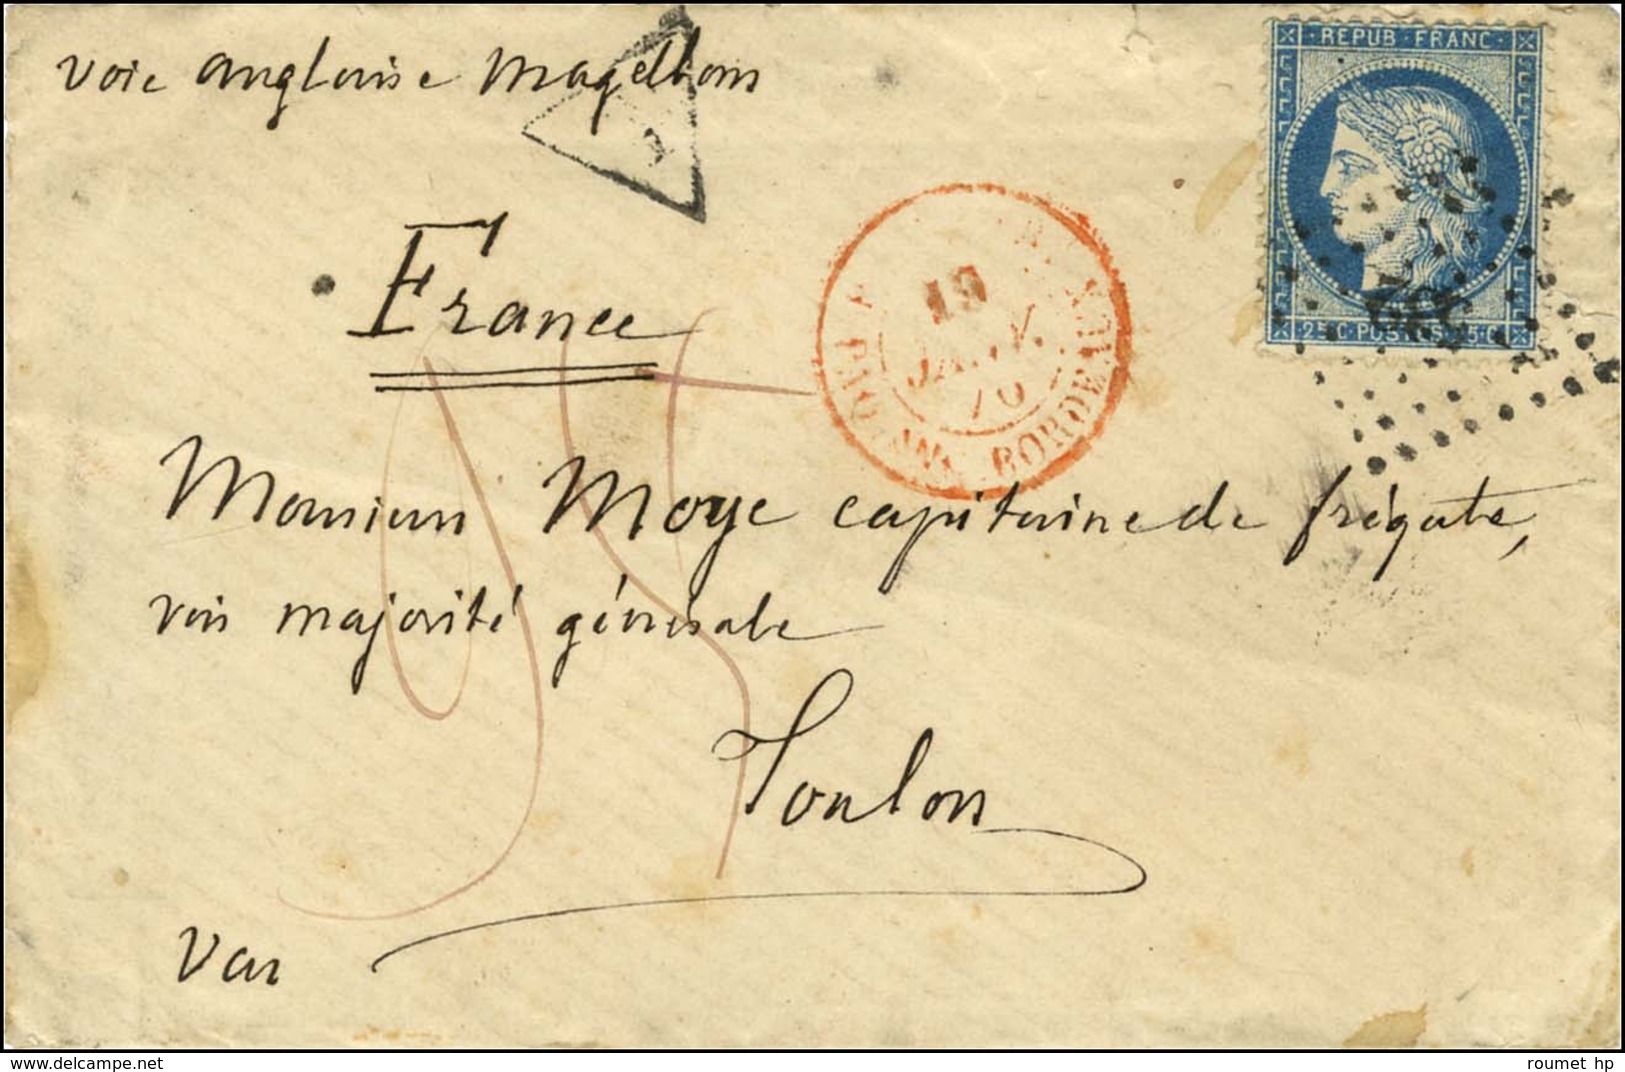 voie anglaise Magellan
REPUB FRANC
France
19
JANV.
76
PAQ. ANG. BORDEAUX
Monsieur Moye capitaine de frégate,
rue majorité générale
Toulon
Var
25 C POSTES 25 C
delcampe.net
roumet hp